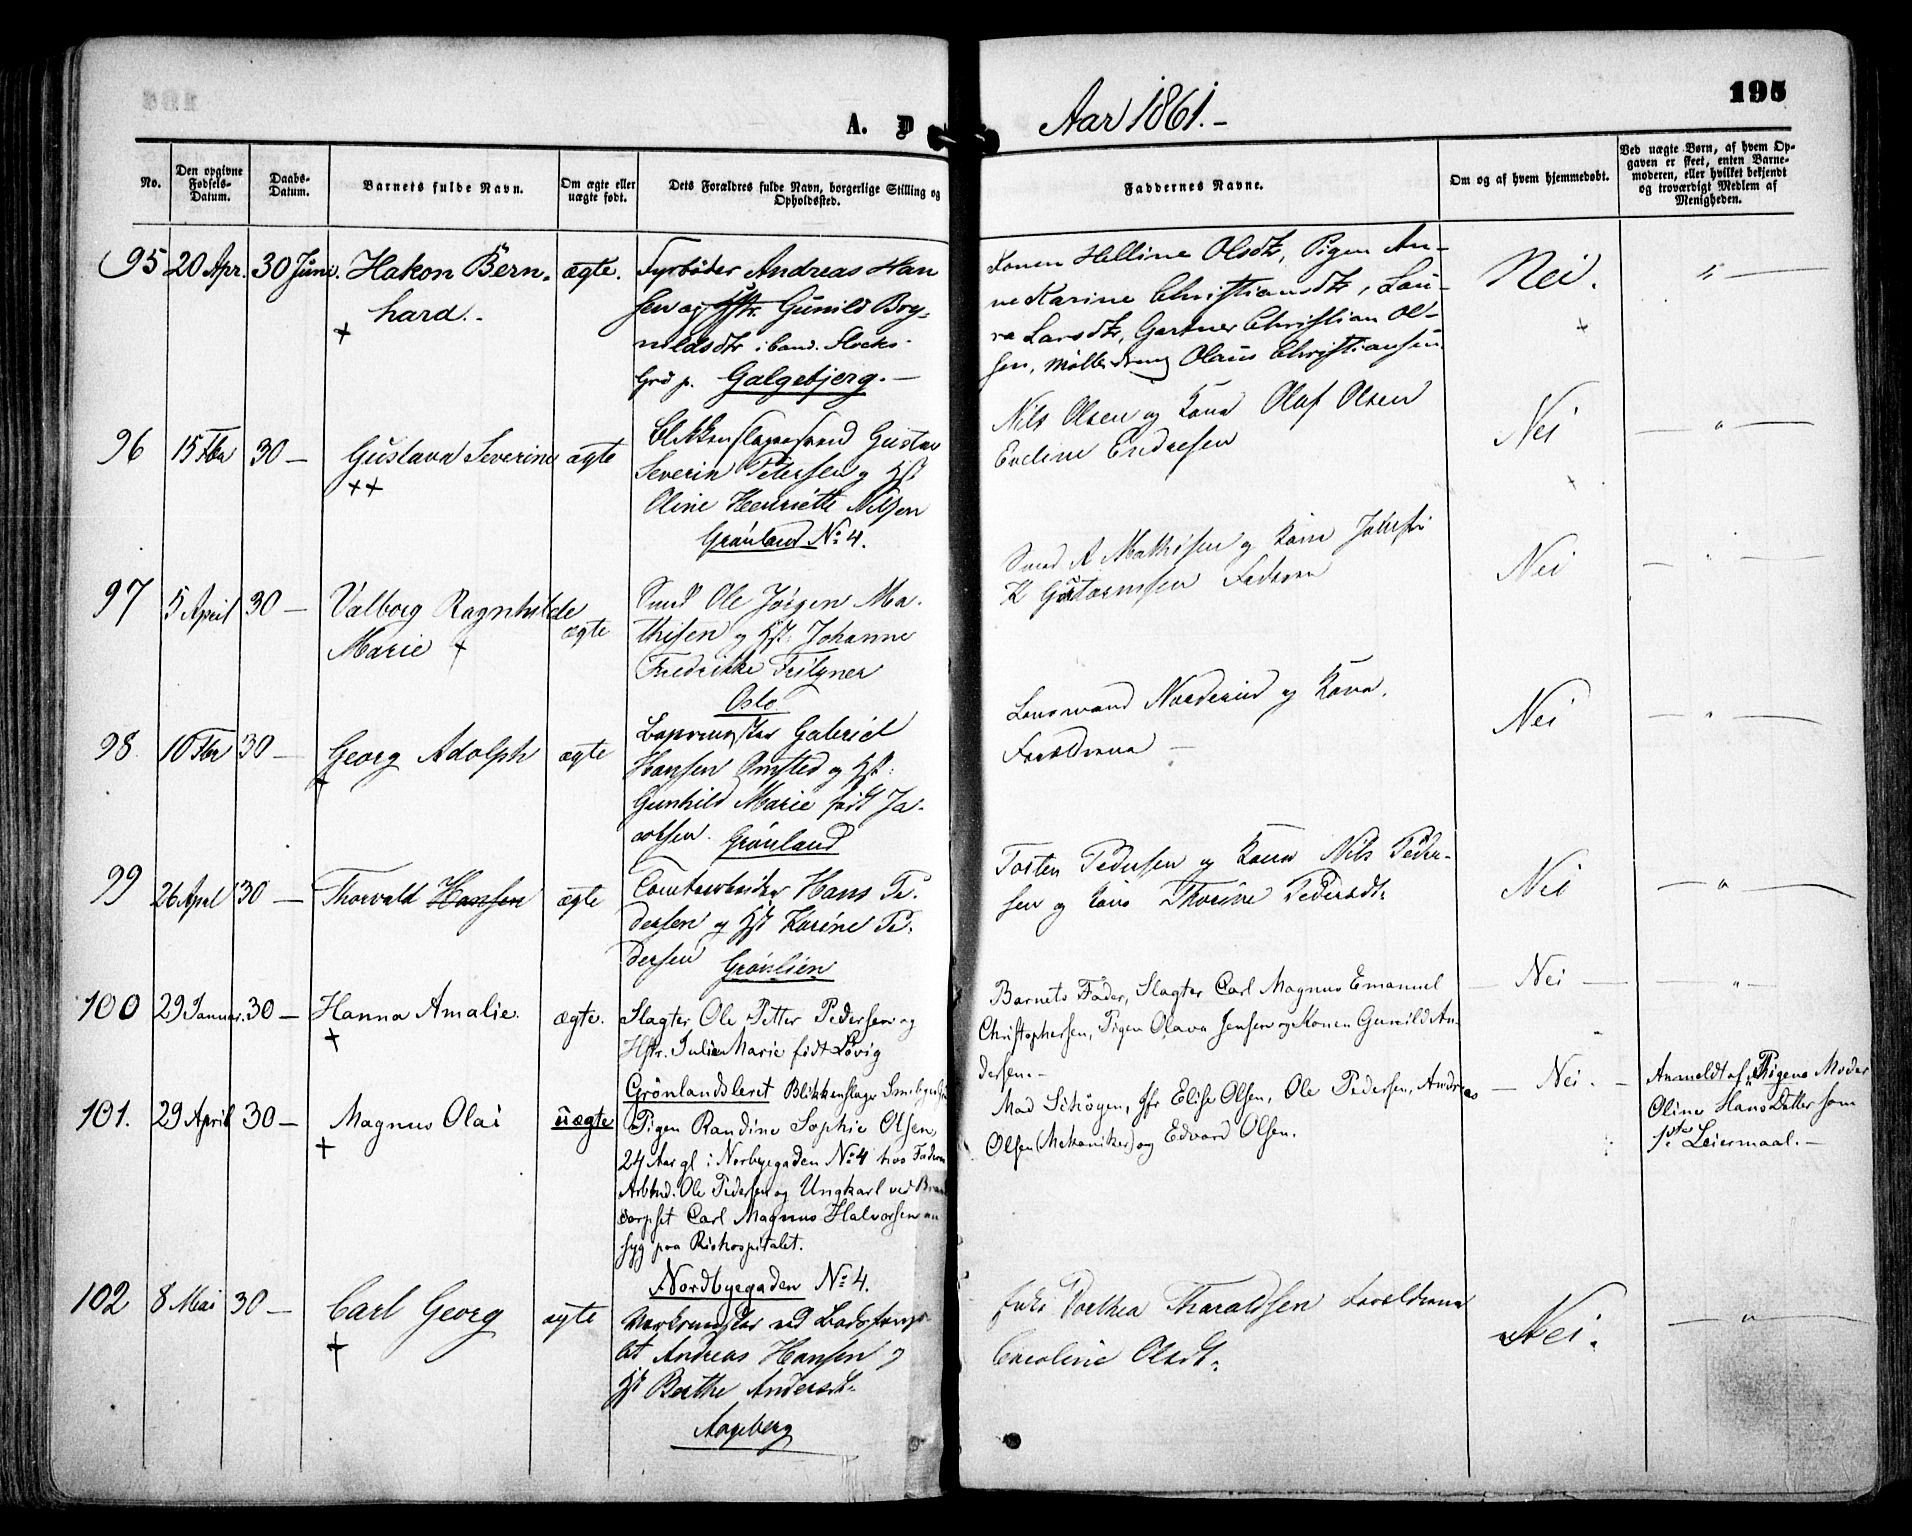 195
A. D
Aar 1861.-
No.
Den opgivne Fødsels-Datum.
Daabs-Datum.
Barnets fulde Navn.
Om ægte eller uægte født.
Dets Forældres fulde Navn, borgerlige Stilling og Opholdssted.
Faddernes Navne.
Om og af hvem hjemmedøbt.
Ved uægte Børn, af hvem Opgaven er skeet, enten Barnemoderen, eller hvilket bekjendt og troværdigt Medlem af Menigheden.
95 20 Apr. 30 Juni. Hakon Bern-
hard.-
ægte.
Fyrbøder Andreas Han
sen og Hstr. Gunild Bog-
nildsdtr
Grd p. Galgebjerg.-
Konen Helline Olsdtr, Pigen An-
ne Karine Christiansdtr, Lau-
ra Larsdtr, Gartner Christian Ol-
sen, Møllerdreng Olaus Christiansen
Nei.
96 15 Fbr 30 - Gustava Severine ægte
Blikkenslagersvend Gustav
Severin Petersen og Hst
Oline Henriette Nilsen
Grønland No 4.
Nils Olsen og Kone Olaf Olsen
Eveline Endresen
Nei
97 5 April 30 - Valborg Ragnhilde
Marie
ægte
Smed Ole Jørgen Ma-
thisen og Hst: Johanne
Fredrikke
Oslo.
Smed A Mathisen og Kone
K Fadren
Nei
98. 10 Fbr 30 - Georg Adolph ægte
Gabriel
Hansen Omsted og Hst:
Gunhild Marie født Ja-
cobsen. Grønland
Norderud og Kone.
Forældrene -
Nei
99 26 April 30 - Thorvald Hansen ægte
Hans Pe-
dersen og Hst Karine Pe-
dersen Grønlien
Tosten Pedersen og Kone Nils Peder-
sen og Kone Thorine Pedersdt.
Nei
100 29 Januar. 30 - Hanna Amalie. ægte.
Slagter Ole Petter Pedersen og
Hstr. Julie Marie født Løvig
Grönlandsleret
Barnets Fader, Slagter Carl Magnus Emanuel
Christophersen, Pigen Olava Jensen og Konen Gunild An-
dersen.-
- Nei -
101. 29 April 30 - Magnus Olai uægte
Blikkenslager
Pigen Randine Sophie Olsen,
24 Aar gl i Norbyegaden No 4 hos Faderen
Arbmd. Ole Pedersen og Ungkarl ved Brand
corpset Carl Magnus Halvorsen nu
syg paa Rishospitalet.
Nordbyegaden No 4.
Mad Schøgen, Jfr Elise Olsen, Ole Pedersen, Andreas
Olsen (Mekaniker) og Edvard Olsen.
- Nei. -
Anmeldt af Pigens Moder
Oline Hansdatter som
1ste Leiermaal.-
102 8 Mai 30 - Carl Georg ægte
ved Bodsfængs-
let Andreas Hansen og
Hst Berthe Andersdt.
Aageberg
Enke Dorthea Tharaldsen Forældrene
Caroline Olsdt.
Nei.